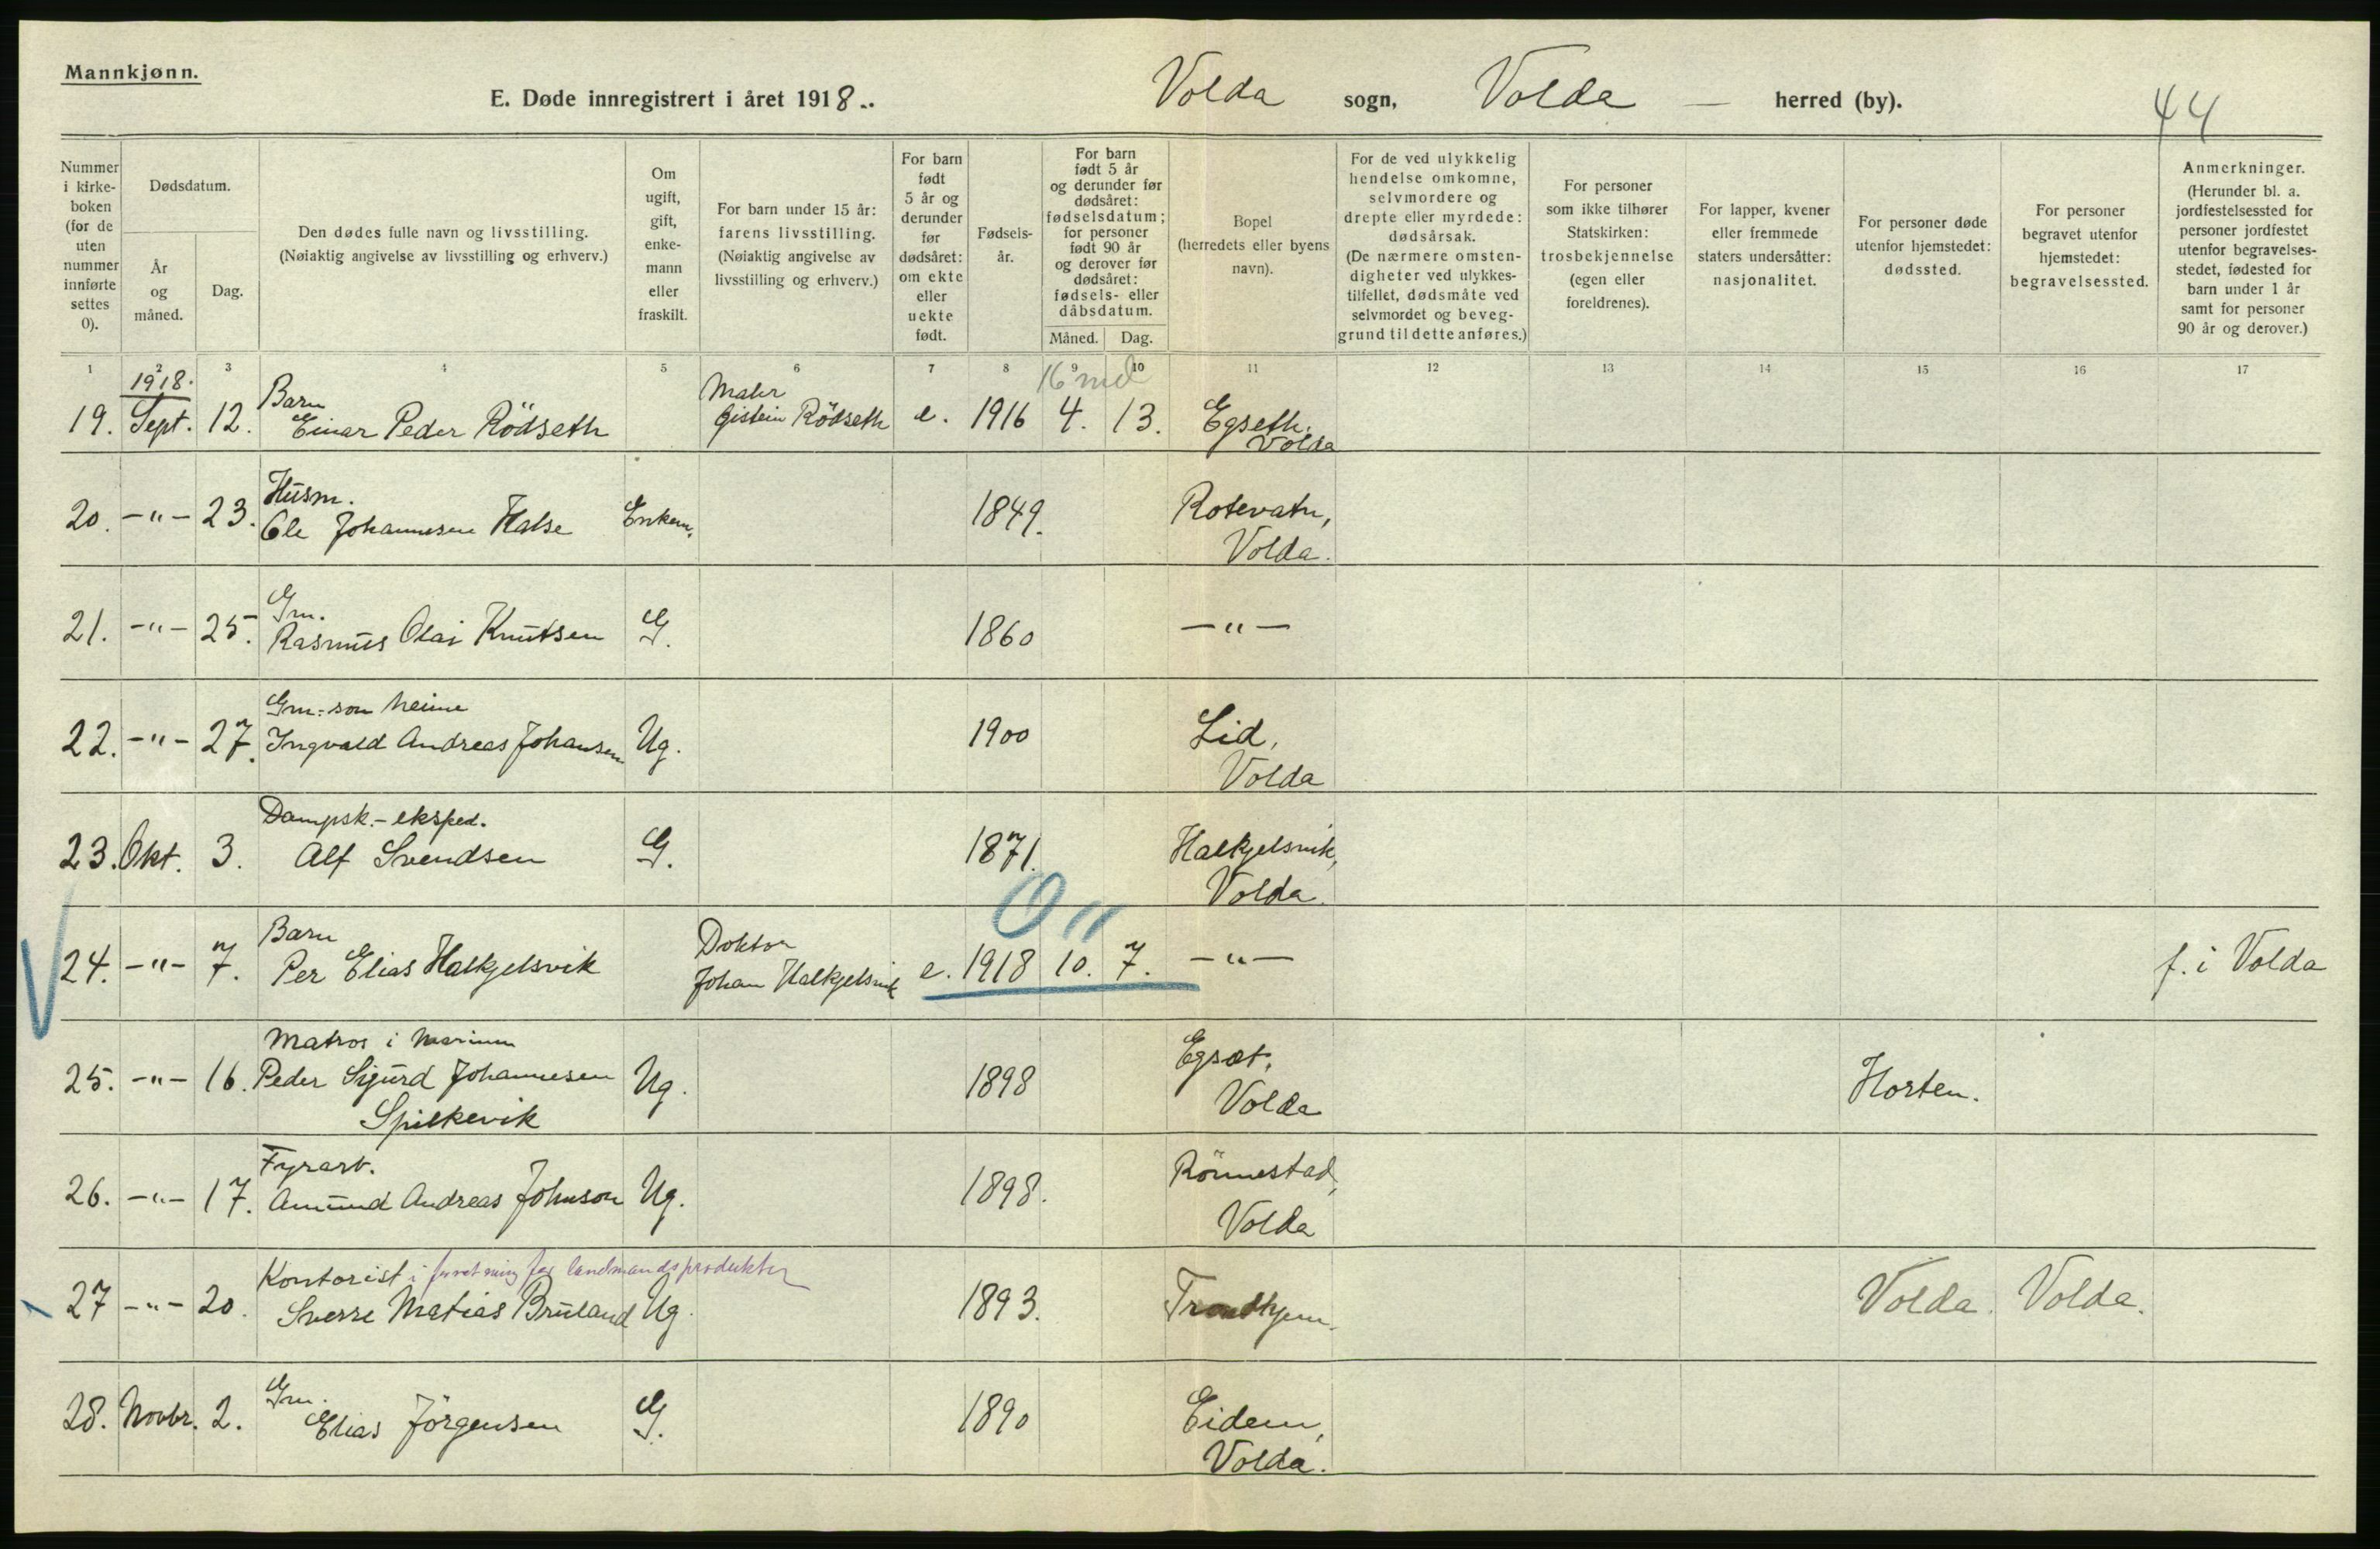 Mannkjønn.
E. Døde innregistrert i året 1918.. Volda sogn, Volda — herred (by).
44
Nummer i kirke-boken (for de uten nummer innførte settes 0).
Dødsdatum.
År og måned.
Dag.
Den dødes fulle navn og livsstilling.
(Nøiaktig angivelse av livsstilling og erhverv.)
Om ugift, gift, enke-mann eller fraskilt.
For barn under 15 år: farens livsstilling.
(Nøiaktig angivelse av livsstilling og erhverv.)
For barn født 5 år og derunder før dødsåret: om ekte eller uekte født.
Fødsels-år.
For barn født 5 år og derunder før dødsåret: fødselsdatum; for personer født 90 år og derover før dødsåret: fødsels- eller dåbsdatum.
Måned. Dag.
Bopel (herredets eller byens navn).
For de ved ulykkelig hendelse omkomne, selvmordere og drepte eller myrdede: dødsårsak.
(De nærmere omsten-digheter ved ulykkes-tilfellet, dødsmåte ved selvmordet og beveg-grund til dette anføres.)
For personer som ikke tilhører Statskirken: trosbekjennelse (egen eller foreldrenes).
For lapper, kvener eller fremmede staters undersåtter: nasjonalitet.
For personer døde utenfor hjemstedet: dødssted.
For personer begravet utenfor hjemstedet: begravelsessted.
Anmerkninger.
(Herunder bl. a. jordfestelsessted for personer jordfestet utenfor begravelses-stedet, fødested for barn under 1 år samt for personer 90 år og derover.)
1 2 3 4 5 6 7 8 9 10 11 12 13 14 15 16 17
1918. 16 md
Barn Maler
19. Sept. 12. Einar Peder Rödseth Øistein Rödseth e. 1916 4. 13. Egseth.
Volda
Husm.
20. -"- 23. Ole Johannesen Halse Enkem. 1849. Rotevatn,
Volda.
Gm.
21. -"- 25. Rasmus Olai Knutsen G. 1860 -"-
Gm.-son heime
22. -"- 27. Ingvald Andreas Johansen Ug. 1900 Lid,
Volda
Dampsk.-eksped.
23. Okt. 3. Alf Svendsen G. 1871. Halkjelsvik,
Volda.
0 "
Barn Doktor
24. -"- 7. Per Elias Halkjelsvik Johan Halkjelsvik e. 1918 10. 7. -"- f. i Volda
Matros i Marinen
25. -"- 16. Peder Sigurd Johannesen Ug. 1898 Egset, Horten.
Spilkevik Volda
Fyrarb.
26. -"- 17. Amund Andreas Johnson Ug. 1898. Rönnestad,
Volda
Kontorist i forretning for landmandsprodukter
27 -"- 20. Sverre Matias Bruland Ug. 1893. Trondhjem. Volda. Volda.
Gm.
28. Novbr. 2. Elias Jörgensen G. 1890 Eidem,
Volda.